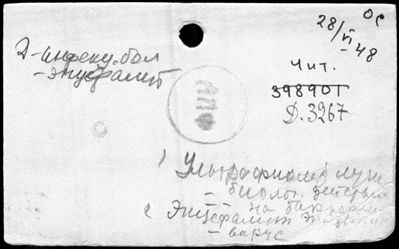 28/VI 48
Д-инфекц. бол
- Энцефалит
Чит.
398901
Д.3267
1 Ультрафиолет луч
- биолог. действ
- на
2 Энцефалит
- вирус